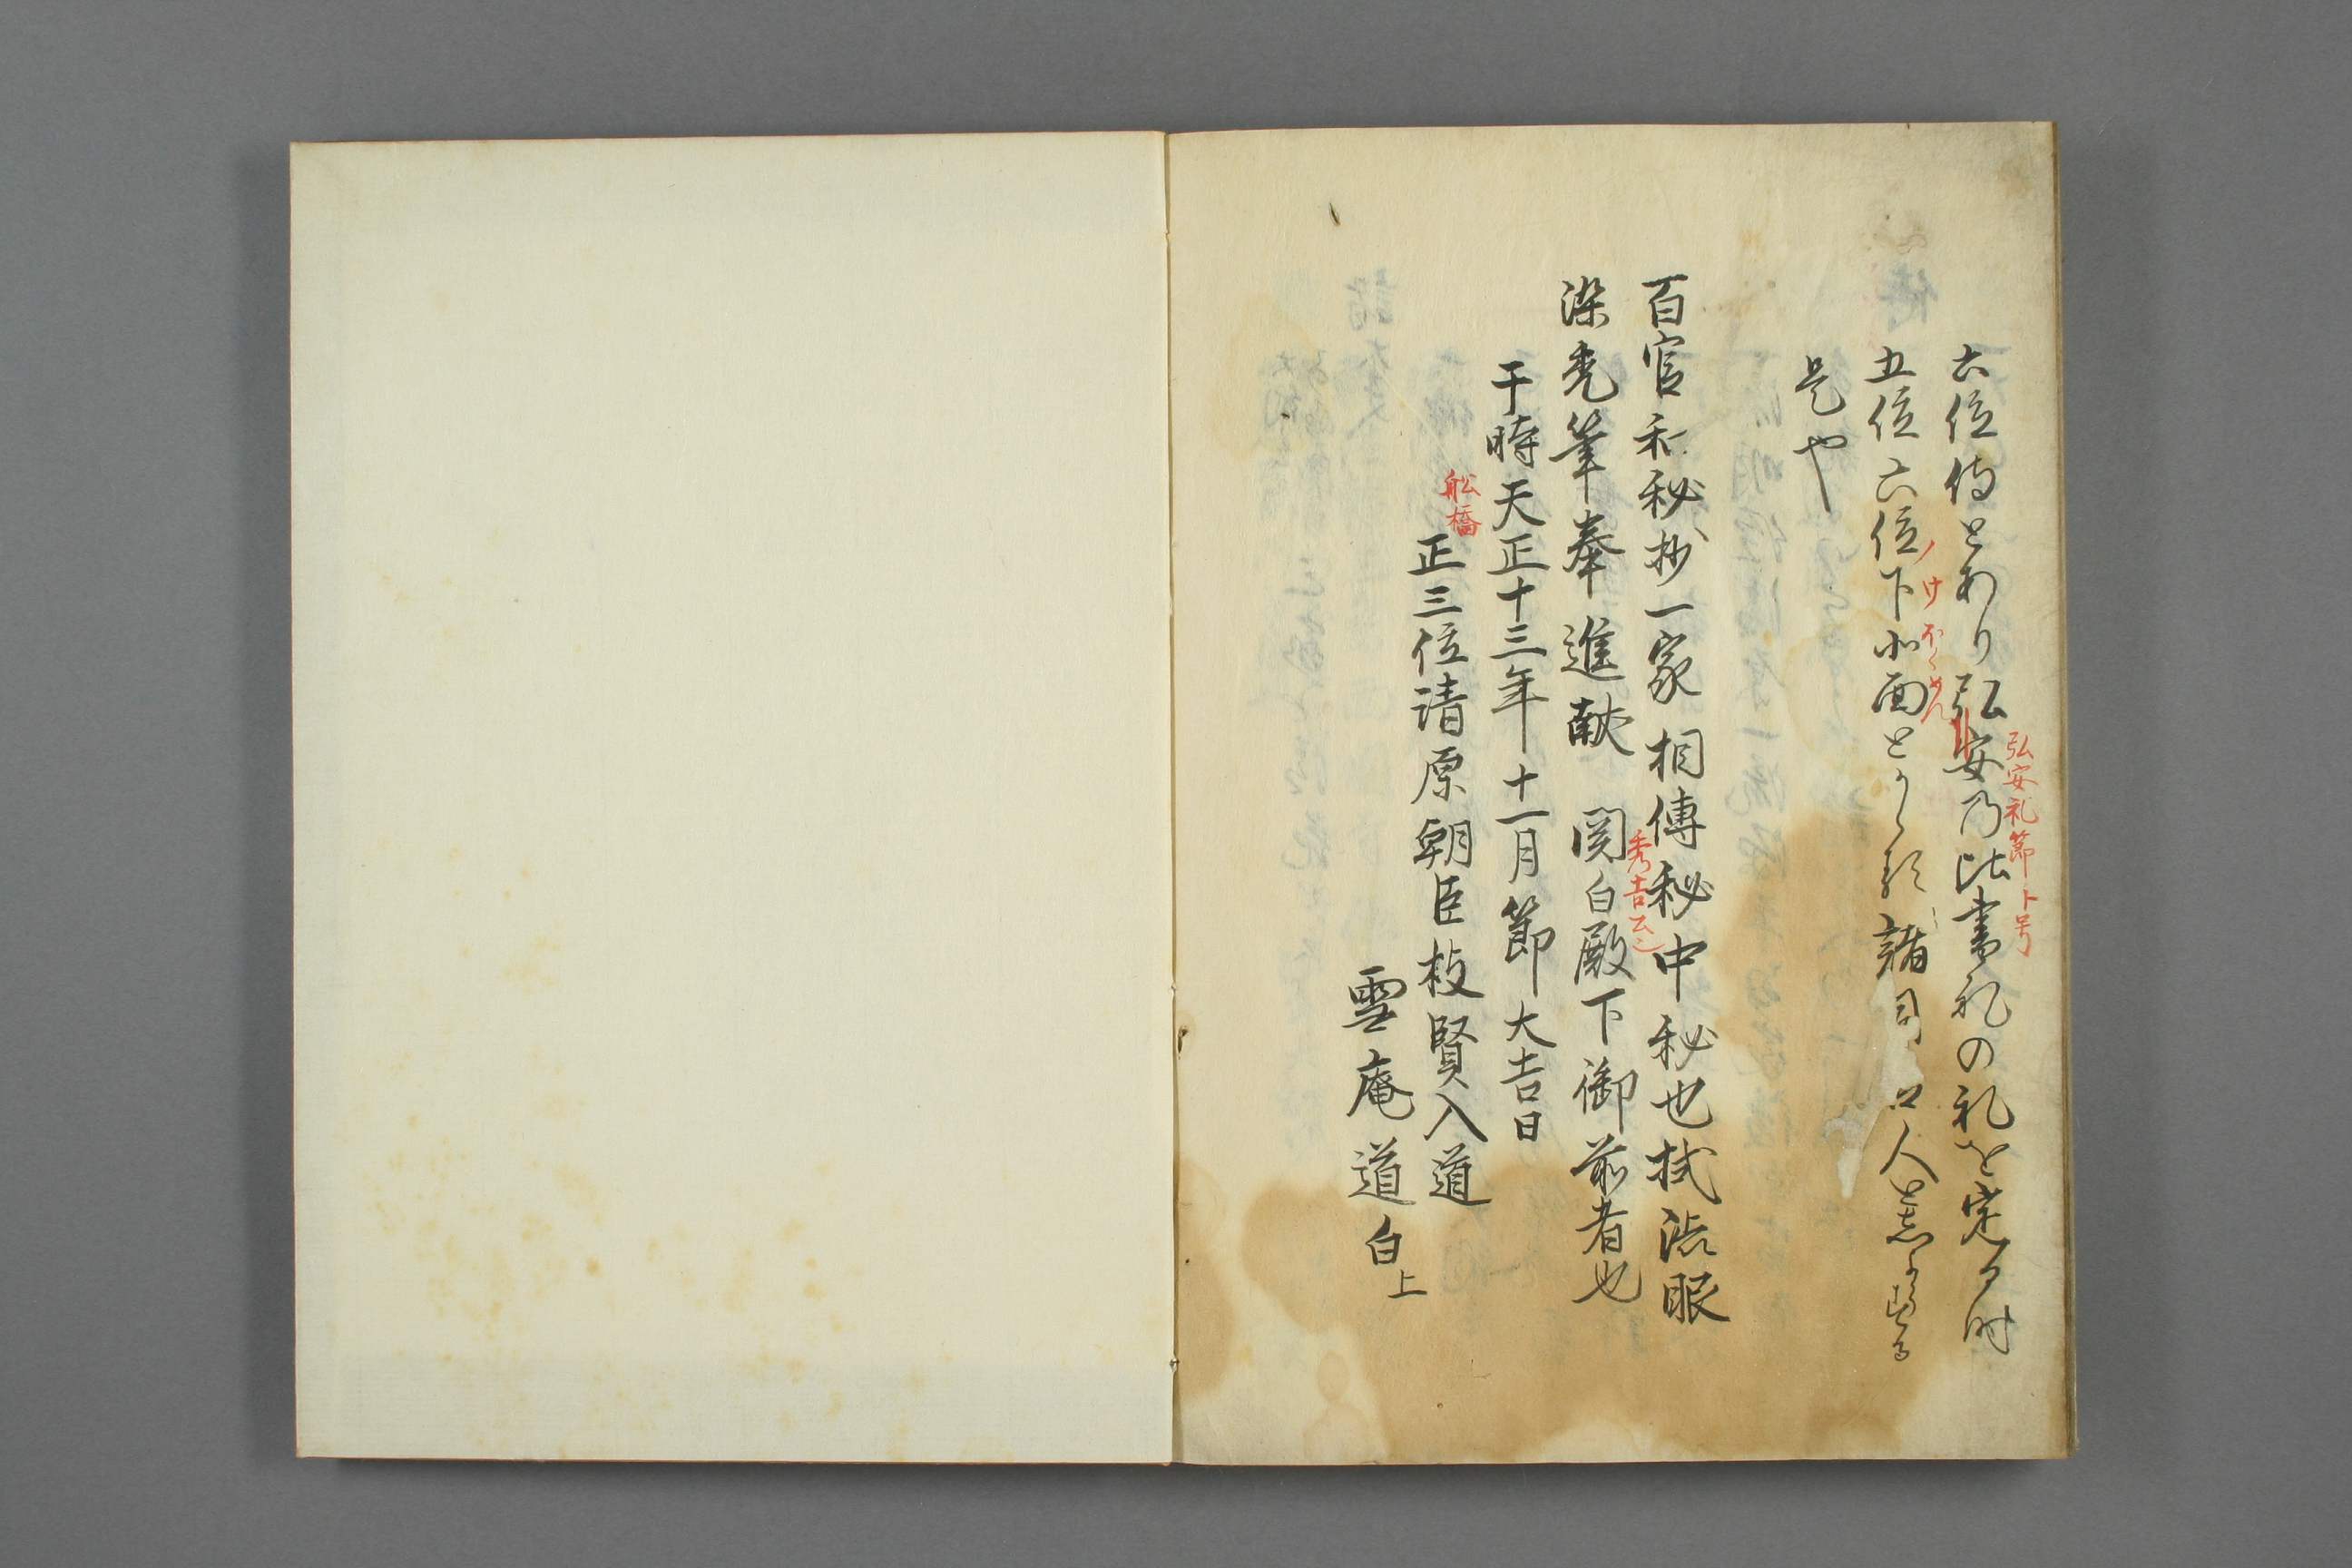 六位侍とあり弘安乃比書札の礼を定る時
弘安礼節ト号
五位六位下北面とかく諸司
ノけほくめん
是や
百官和秘抄一家相傳秘中秘也拭渋眼
染禿筆奉進献 関白殿下御前者也
秀吉公
于時天正十三年十一月節大吉日
舩橋
正三位清原朝臣枝賢入道
雪庵道白上